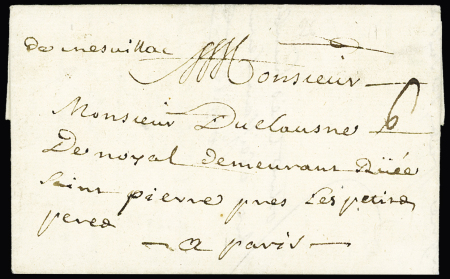 de mesuillac Monsieur
Monsieur Duclausne 6
De noyal demeurant Rüee
saint pierre pres les petits
peres
a paris